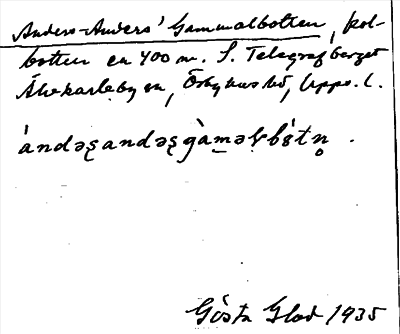 Anders-Anders' Gammalbotten, kol-
botten ca 400 m. S. Telegrafberget
Älvkarleby sn, Örbyhus hd, Upps. l.
àndəʂandəʂgàməɭbɞ́tn̥.
Gösta Glad 1935